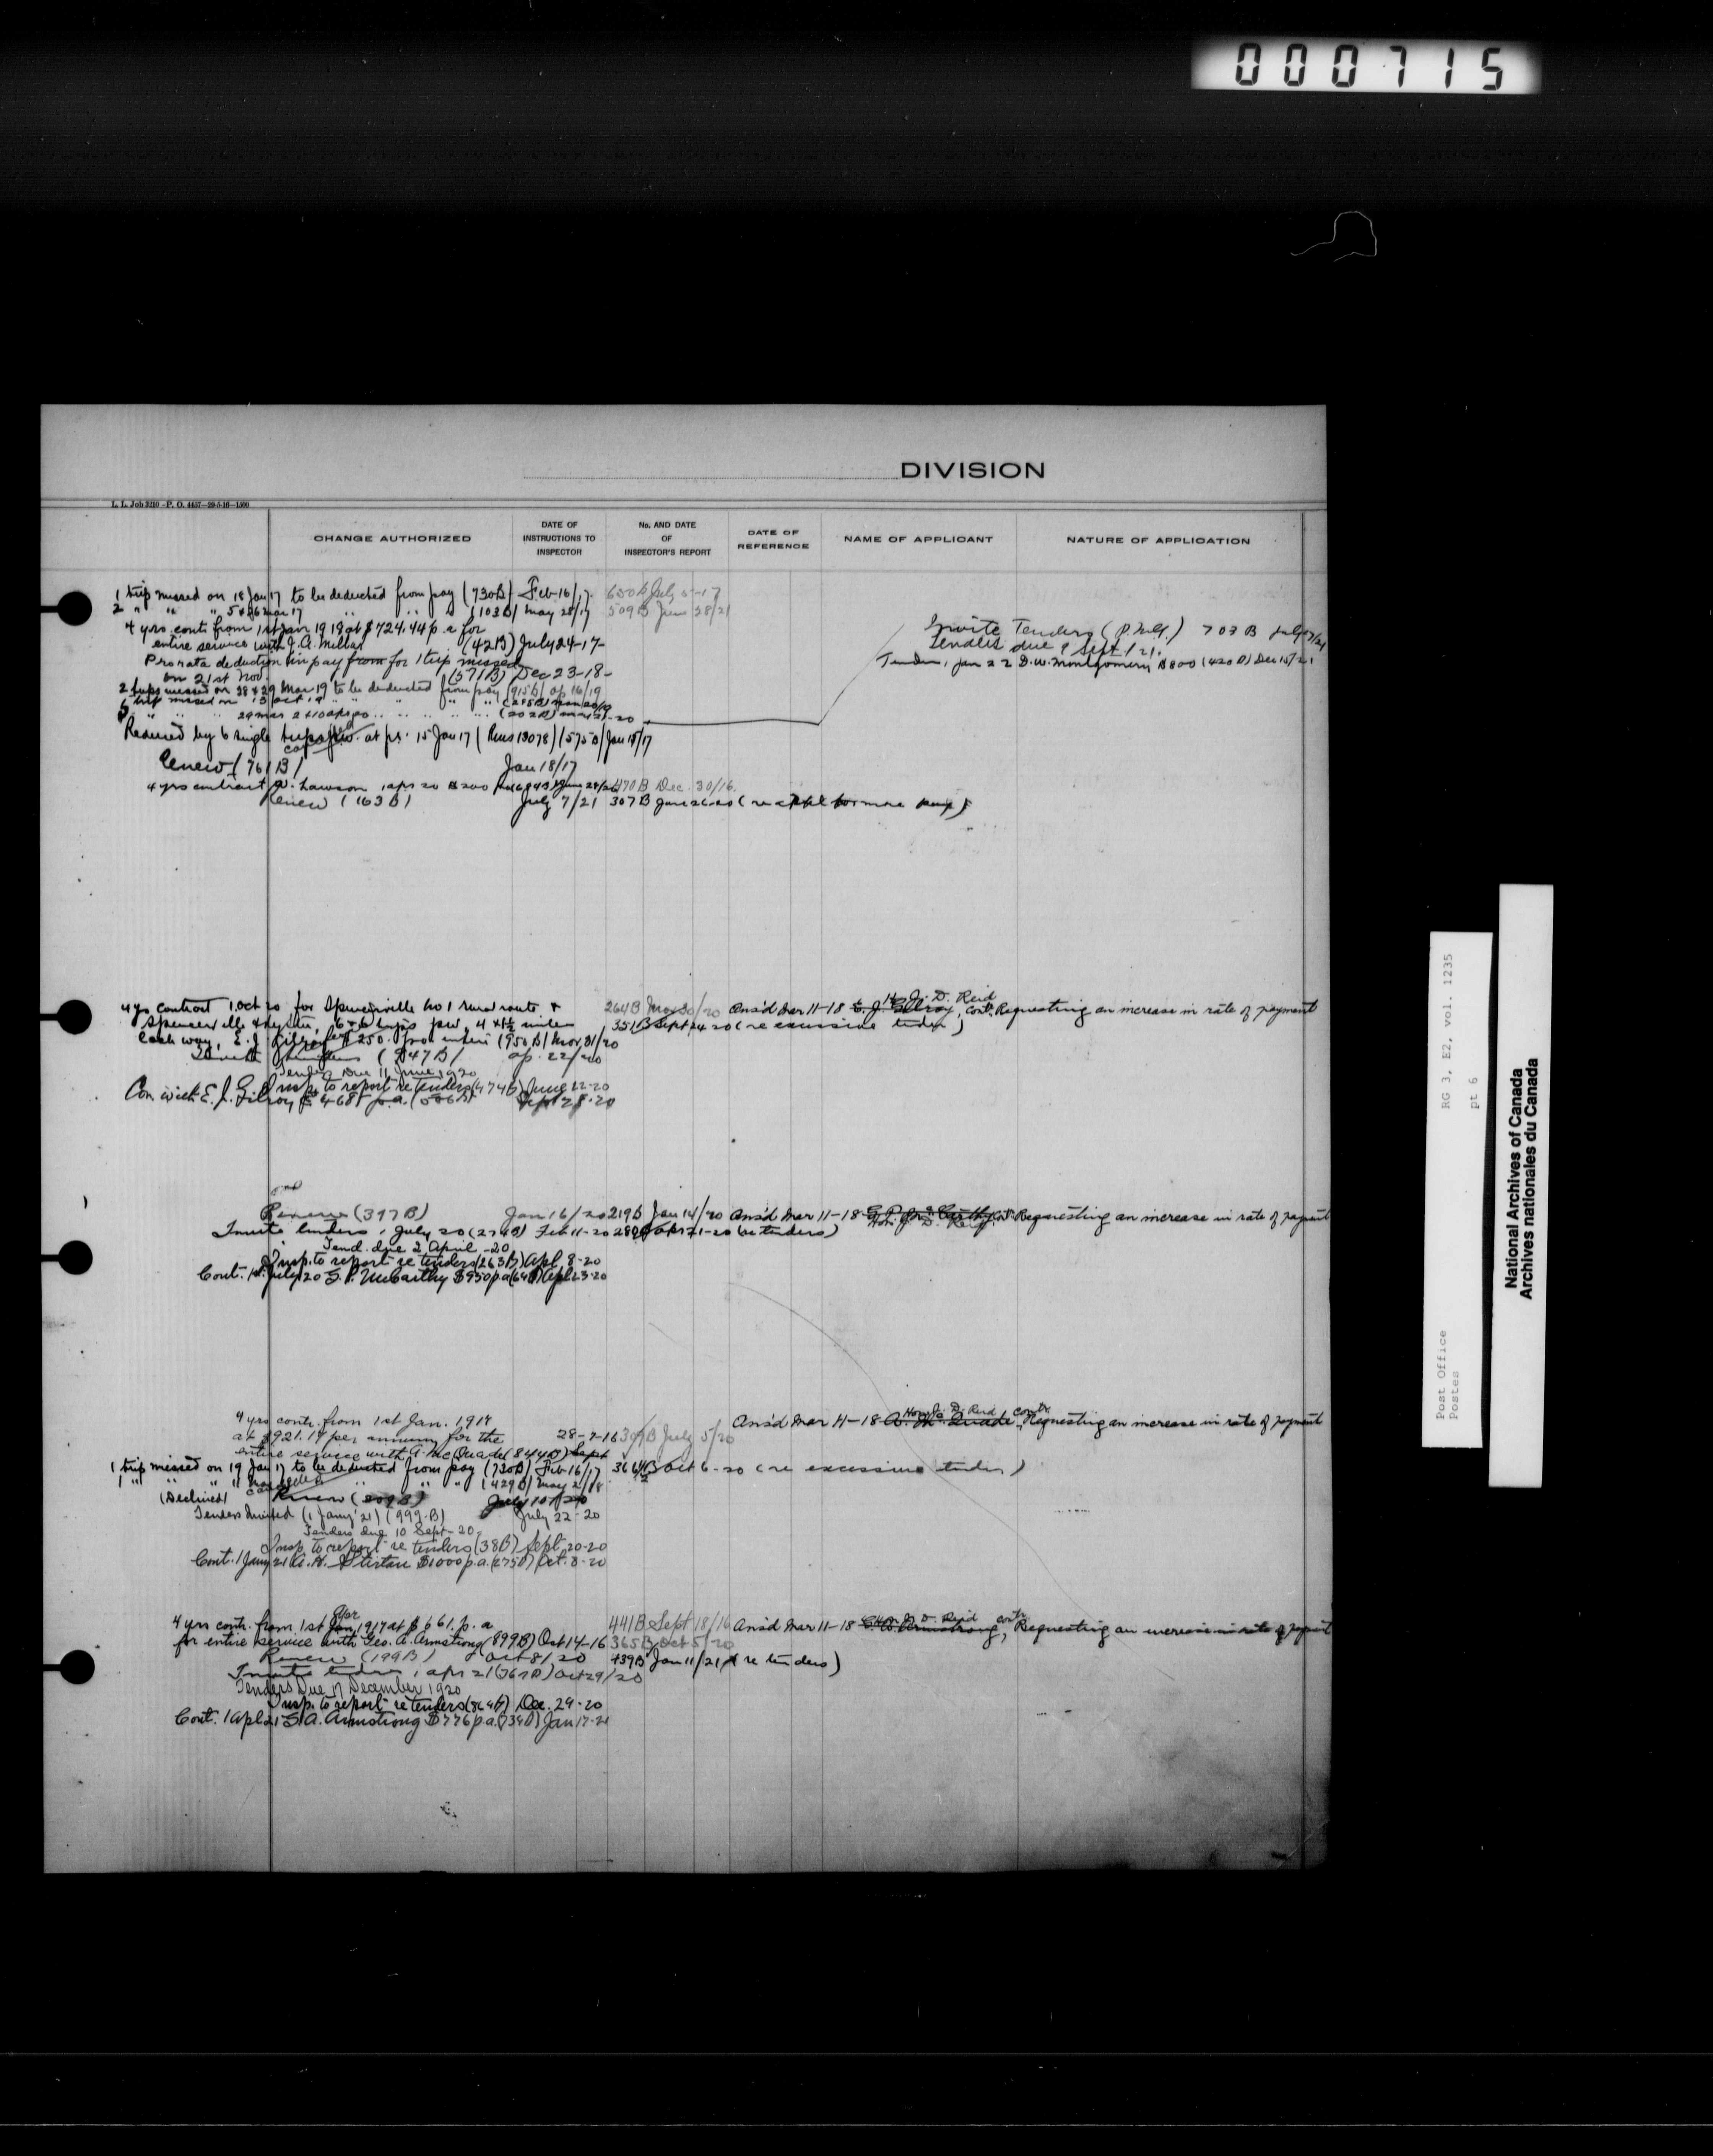 000715
DIVISION
L. L. Job 3210 - P. O. 4457-29-5-16-1500
CHANGE AUTHORIZED
DATE OF INSTRUCTIONS TO INSPECTOR
No. AND DATE OF INSPECTOR'S REPORT
DATE OF REFERENCE
NAME OF APPLICANT
NATURE OF APPLICATION
1 trip missed on 18 Jan 17 to be deducted from pay (730B) Feb-16/17
2 " " " 5 & 26 Mar 17 " " " (103B) May 28/17 509 B June 28/21
4 yrs. contr from 1st Jan 1918 at $724.44 p.a for
entire service with J. A. Millar (42B) July 24-17-
Pro rata deduction in pay from for 1 trip missed
on 21st Nov. (571B) Dec 23-18-
2 trips missed on 28 & 29 Mar 19 to be deducted from pay (915B) ap 16/19
Invite Tenders (P. McG.) 703 B
Tenders due 9 Sept/21.
Tender, Jan 22 D. W. Montgomery $800 (420 B) Dec 15/21
Reduced by 6 single trips p.w. at pr. 15 Jan 17 (Rus 13078) (575B) Jan 15/17
Renew (761B) Jan 18/17
4 yrs contract Lawson 1 apr 20 $200 470B Dec. 30/16.
Renew (163B) July 7/21 307 B June 26-20 (re appl for more pay)
4 yrs contract 1 Oct 20 for Spencerville No 1 rural route &
Spencerville & Ry Stn, 6 & 6 trips pw, 4 & 1½ miles
each way, E. J. Gilroy $250. (950B) Mar 31/20
264B Mar 30/20 Ansd Mar 11-18 E. J. Gilroy, Hon J. D. Reid Contr. Requesting an increase in rate of payment
351B Sept 24 20 (re excessive tender)
Invite Tenders (847B) ap. 22/20
Tenders Due 11 June 1920
Insp. to report re tenders (474B) June 22-20
Con. with E. J. Gilroy $468 p.a. (506B) Sept 28-20
Renew (397B) Jan 16/20 219B Jan 14/20 Ansd Mar 11-18 G. P. McCarthy Hon. J. D. Reid Requesting an increase in rate of payment
Invite tenders, 1 July 20 Feb 11-20 (re tenders)
Tend. due 2 April -20
Insp. to report re tenders (263B) Apl. 8-20
Cont. 1st July 20 G. P. McCarthy $950 p.a. (64B) Apl 23-20
4 yrs contr. from 1st Jan. 1917
at $921.17 per annum for the 28-9-16 309B July 5/20
entire service with A. McQuade (844B) Sept
Ansd Mar 11-18 A. McQuade Hon J. D. Reid contr. Requesting an increase in rate of payment
1 trip missed on 19 Jan 17 to be deducted from pay (730B) Feb-16/17 366½B Oct 6-20 (re excessive tender)
1 " " " " " (429B) May 2/18
(Declined) cancelled Renew (209B) July 10/20
Tenders Invited (1 Jany '21) (999-B) July 22-20
Tenders due 10 Sept-20
Insp. to report re tenders (38B) Sept. 20-20
Cont. 1 Jany 21 A. H. Stirtan $1000 p.a. (275B) Oct. 8-20
4 yrs contr. from 1st Jan Apr 1917 at $661. p. a
for entire service with Geo. A. Armstrong (899B) Oct 14-16
441B Sept 18/16 Ansd Mar 11-18 G. A. Armstrong, Hon J. D. Reid contr. Requesting an increase in rate of payment
365B Oct 5/20
Renew (199B) Oct 8/20 739B Jan 11/21 (re tenders)
Invite tenders, 1 apr 21 (367B) Oct 29/20
Tenders Due 17 December 1920
Insp. to report re tenders (864B) Dec. 29-20
Cont. 1 Apl 21 G. A. Armstrong $776 p.a. (734B) Jan 17-21
RG 3, E2, vol. 1235
pt 6
Post Office
Postes
National Archives of Canada
Archives nationales du Canada